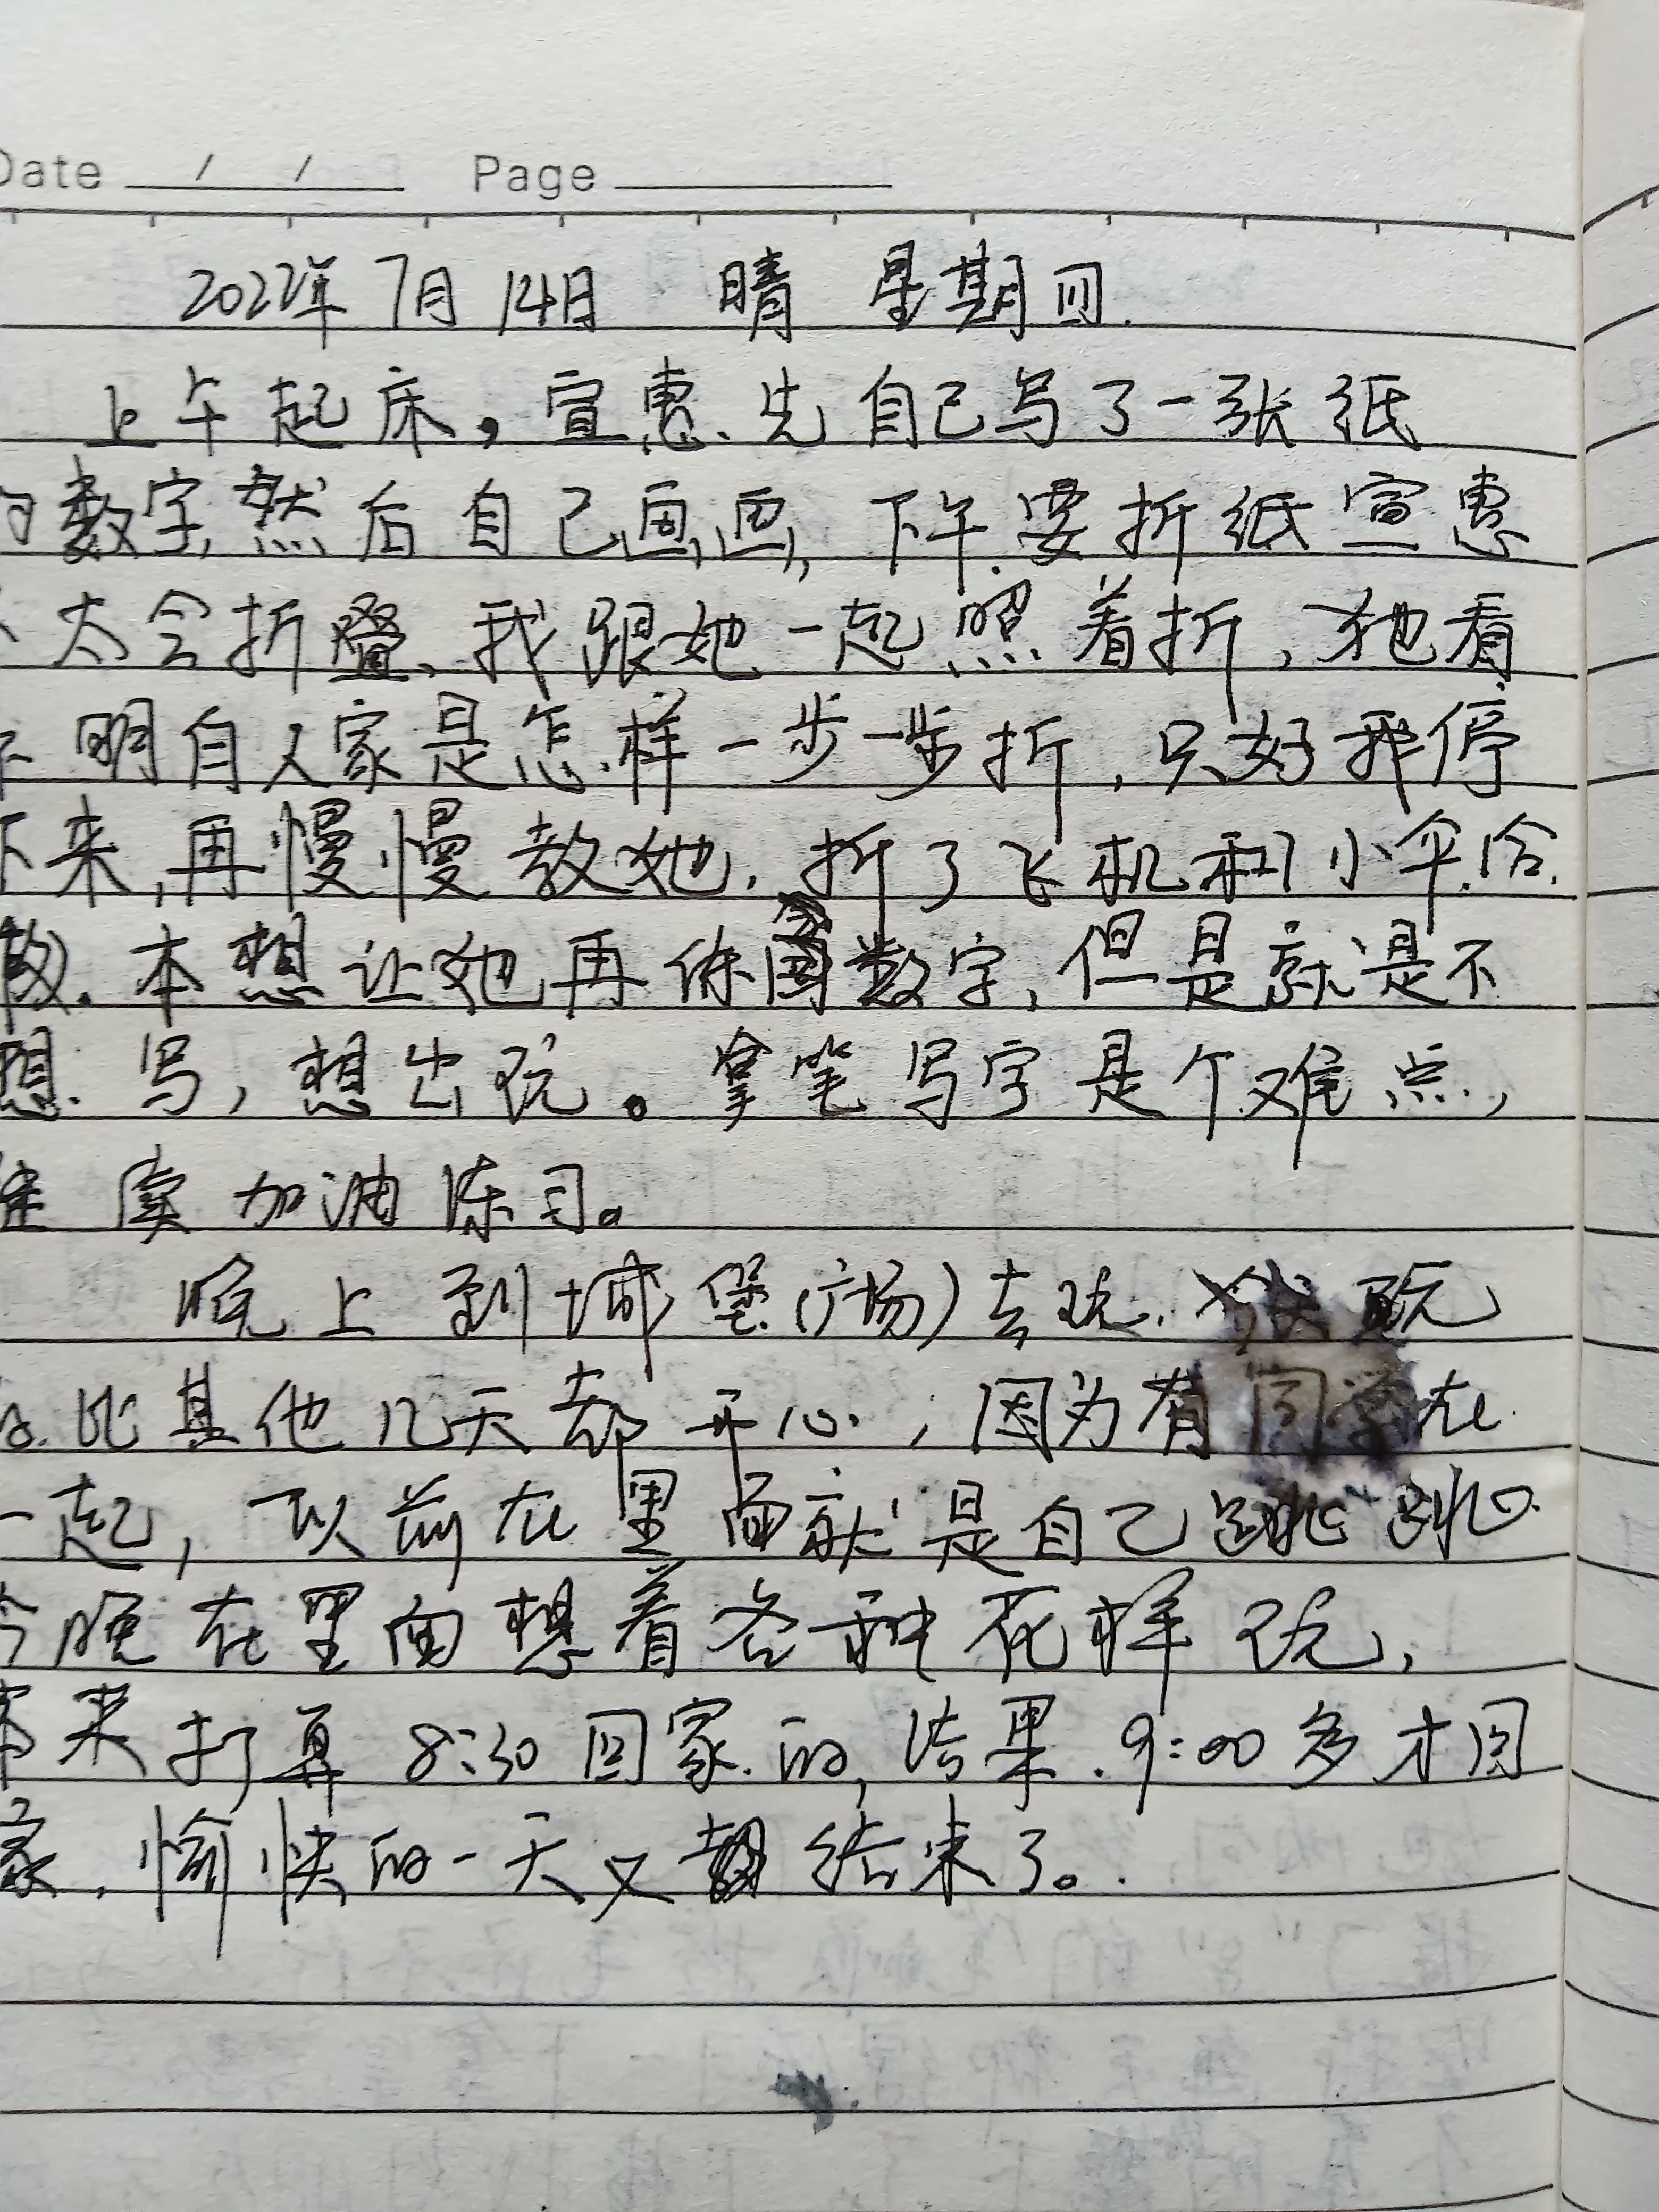 Date / / Page
2022年7月14日 晴 星期四.
上午起床，宣惠、先自己写了一张纸
的数字,然后自己画画,下午.要折纸宣惠
不太会折叠、我跟她一起照着折,她看
不明白人家是怎样一步一步折,只好我停
下来,再慢慢教她.折了飞机和小伞.
做.本想让她再练写数字,但是就是不
想.写,想出玩。拿笔写字是个难点,
加油练习。
晚上到城堡(广场)去玩. 玩
的.比其他几天都开心.,因为有同学在.
一起,以前在里面就是自己跳跳.
今晚在里面想着各种花样玩,
本来打算8:30回家.的,结果.9:00多才回
家,愉快的一天又结束了。.